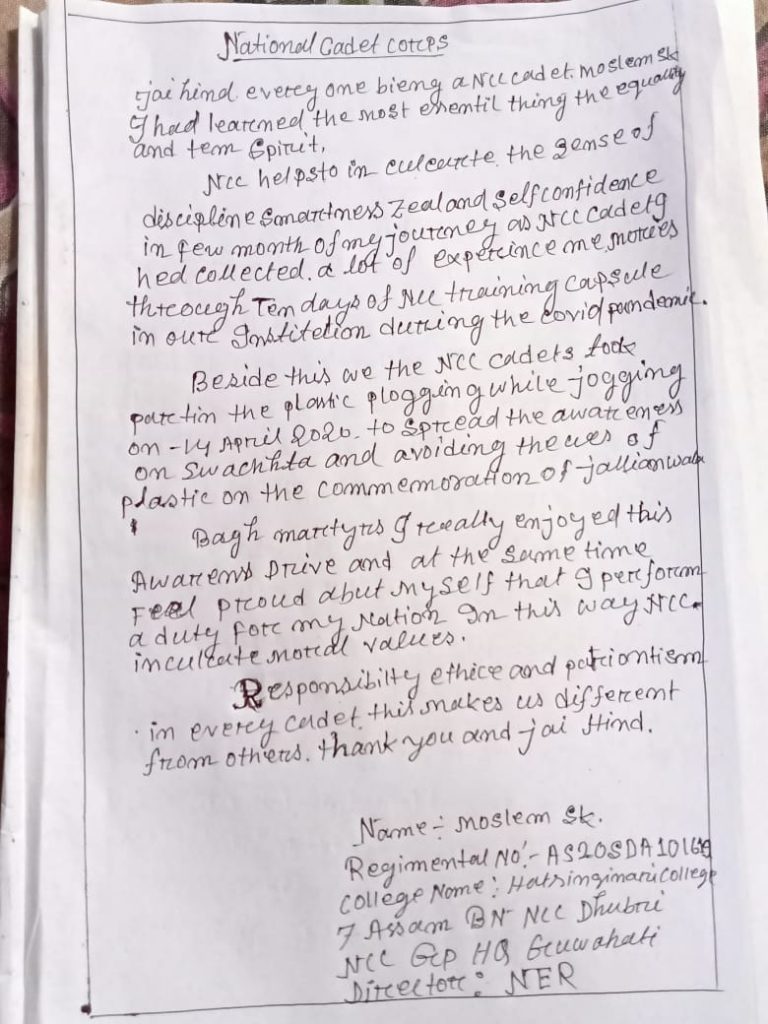 National Cadet Corps
jai hind every one bieng a NCC cadet. moslem sk
I had learned the most esentil thing the equality
and tem Spirit,
Ncc helpsto in culcurcte the sense of
discipline smartness Zeal and Self confidence
in few month of my journey as NCC Cadet g
hed collected. a lot of expercince me, mories
through Ten days of Ncc training capsule
in our Institetion during the covid pandemic.
Beside this we the NCC cadets took
part in the plastic plogging while jogging
on -14 April 2020. to spread the awareness
on swachhta and avoiding the ues of
plastic on the commemoration of jallianwala
Bagh martyrs I really enjoyed this
Awarenes Drive and at the same time
Feel proud abut myself that I perform
a duty for my Nation In this way NCC.
inculcate moral values.
Responsibilty ethice and patriontism
in every cadet. this makes us different
from others. thank you and jai Hind.
Name:- moslem sk.
Regimental No:- AS20SDA10166
College Name: Hatsingimari college
7 Assam BN NCC Dhubri
NCC Gp HQ Guwahati
Director: NER